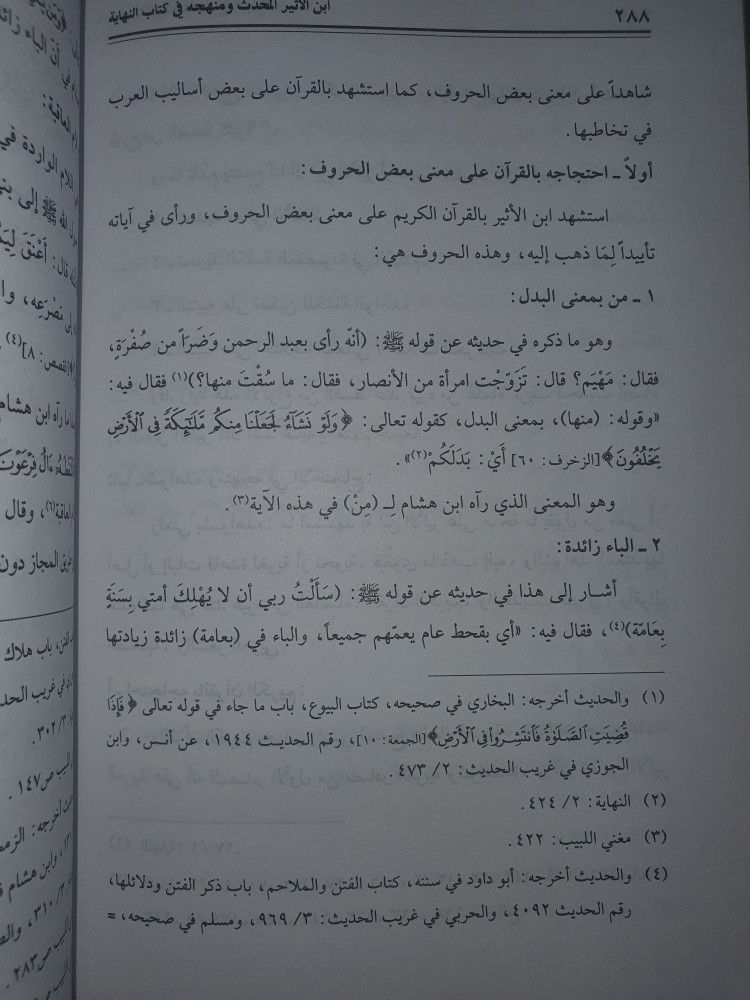 ٢٨٨
ابن الأثير المحدث ومنهجه في كتاب النهاية
شاهداً على معنى بعض الحروف، كما استشهد بالقرآن على بعض أساليب العرب
في تخاطبها.
أولاً ـ احتجاجه بالقرآن على معنى بعض الحروف:
استشهد ابن الأثير بالقرآن الكريم على معنى بعض الحروف، ورأى في آياته
تأييداً لِمَا ذهب إليه، وهذه الحروف هي:
١ ـ من بمعنى البدل:
وهو ما ذكره في حديثه عن قوله ﷺ: (أنّه رأى بعبد الرحمن وَضَرَاً من صُفْرَةٍ،
فقال: مَهْيَم؟ قال: تَزَوَّجْت امرأة من الأنصار، فقال: ما سُقْتَ منها؟)(١) فقال فيه:
«وقوله: (منها)، بمعنى البدل، كقوله تعالى: ﴿وَلَوْ نَشَآءُ لَجَعَلْنَا مِنكُم مَّلَٰٓئِكَةً فِي ٱلْأَرْضِ
يَخْلُفُونَ﴾[الزخرف: ٦٠] أَيْ: بَدَلَكُمْ(٢)».
وهو المعنى الذي رآه ابن هشام لِـ (مِنْ) في هذه الآية(٣).
٢ ـ الباء زائدة:
أشار إلى هذا في حديثه عن قوله ﷺ: (سَأَلْتُ ربي أن لا يُهْلِكَ أمتي بِسَنَةٍ
بِعَامّة)(٤)، فقال فيه: «أي بقحط عام يعمّهم جميعاً، والباء في (بعامة) زائدة زيادتها
(١) والحديث أخرجه: البخاري في صحيحه، كتاب البيوع، باب ما جاء في قوله تعالى ﴿فَإِذَا
قُضِيَتِ ٱلصَّلَوٰةُ فَٱنتَشِرُوا۟ فِي ٱلْأَرْضِ﴾[الجمعة: ١٠]، رقم الحديث ١٩٤٤، عن أنس، وابن
الجوزي في غريب الحديث: ٢/ ٤٧٣.
(٢) النهاية: ٢/ ٤٢٤.
(٣) مغني اللبيب: ٤٢٢.
(٤) والحديث أخرجه: أبو داود في سننه، كتاب الفتن والملاحم، باب ذكر الفتن ودلائلها،
رقم الحديث ٤٠٩٢، والحربي في غريب الحديث: ٣/ ٩٦٩، ومسلم في صحيحه، =